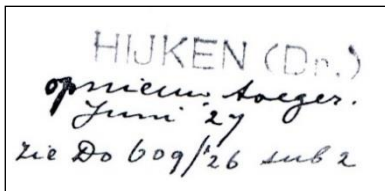 HIJKEN (Dn.)
opnieuw toeger.
Juni '27
zie Do 609/'26 sub 2